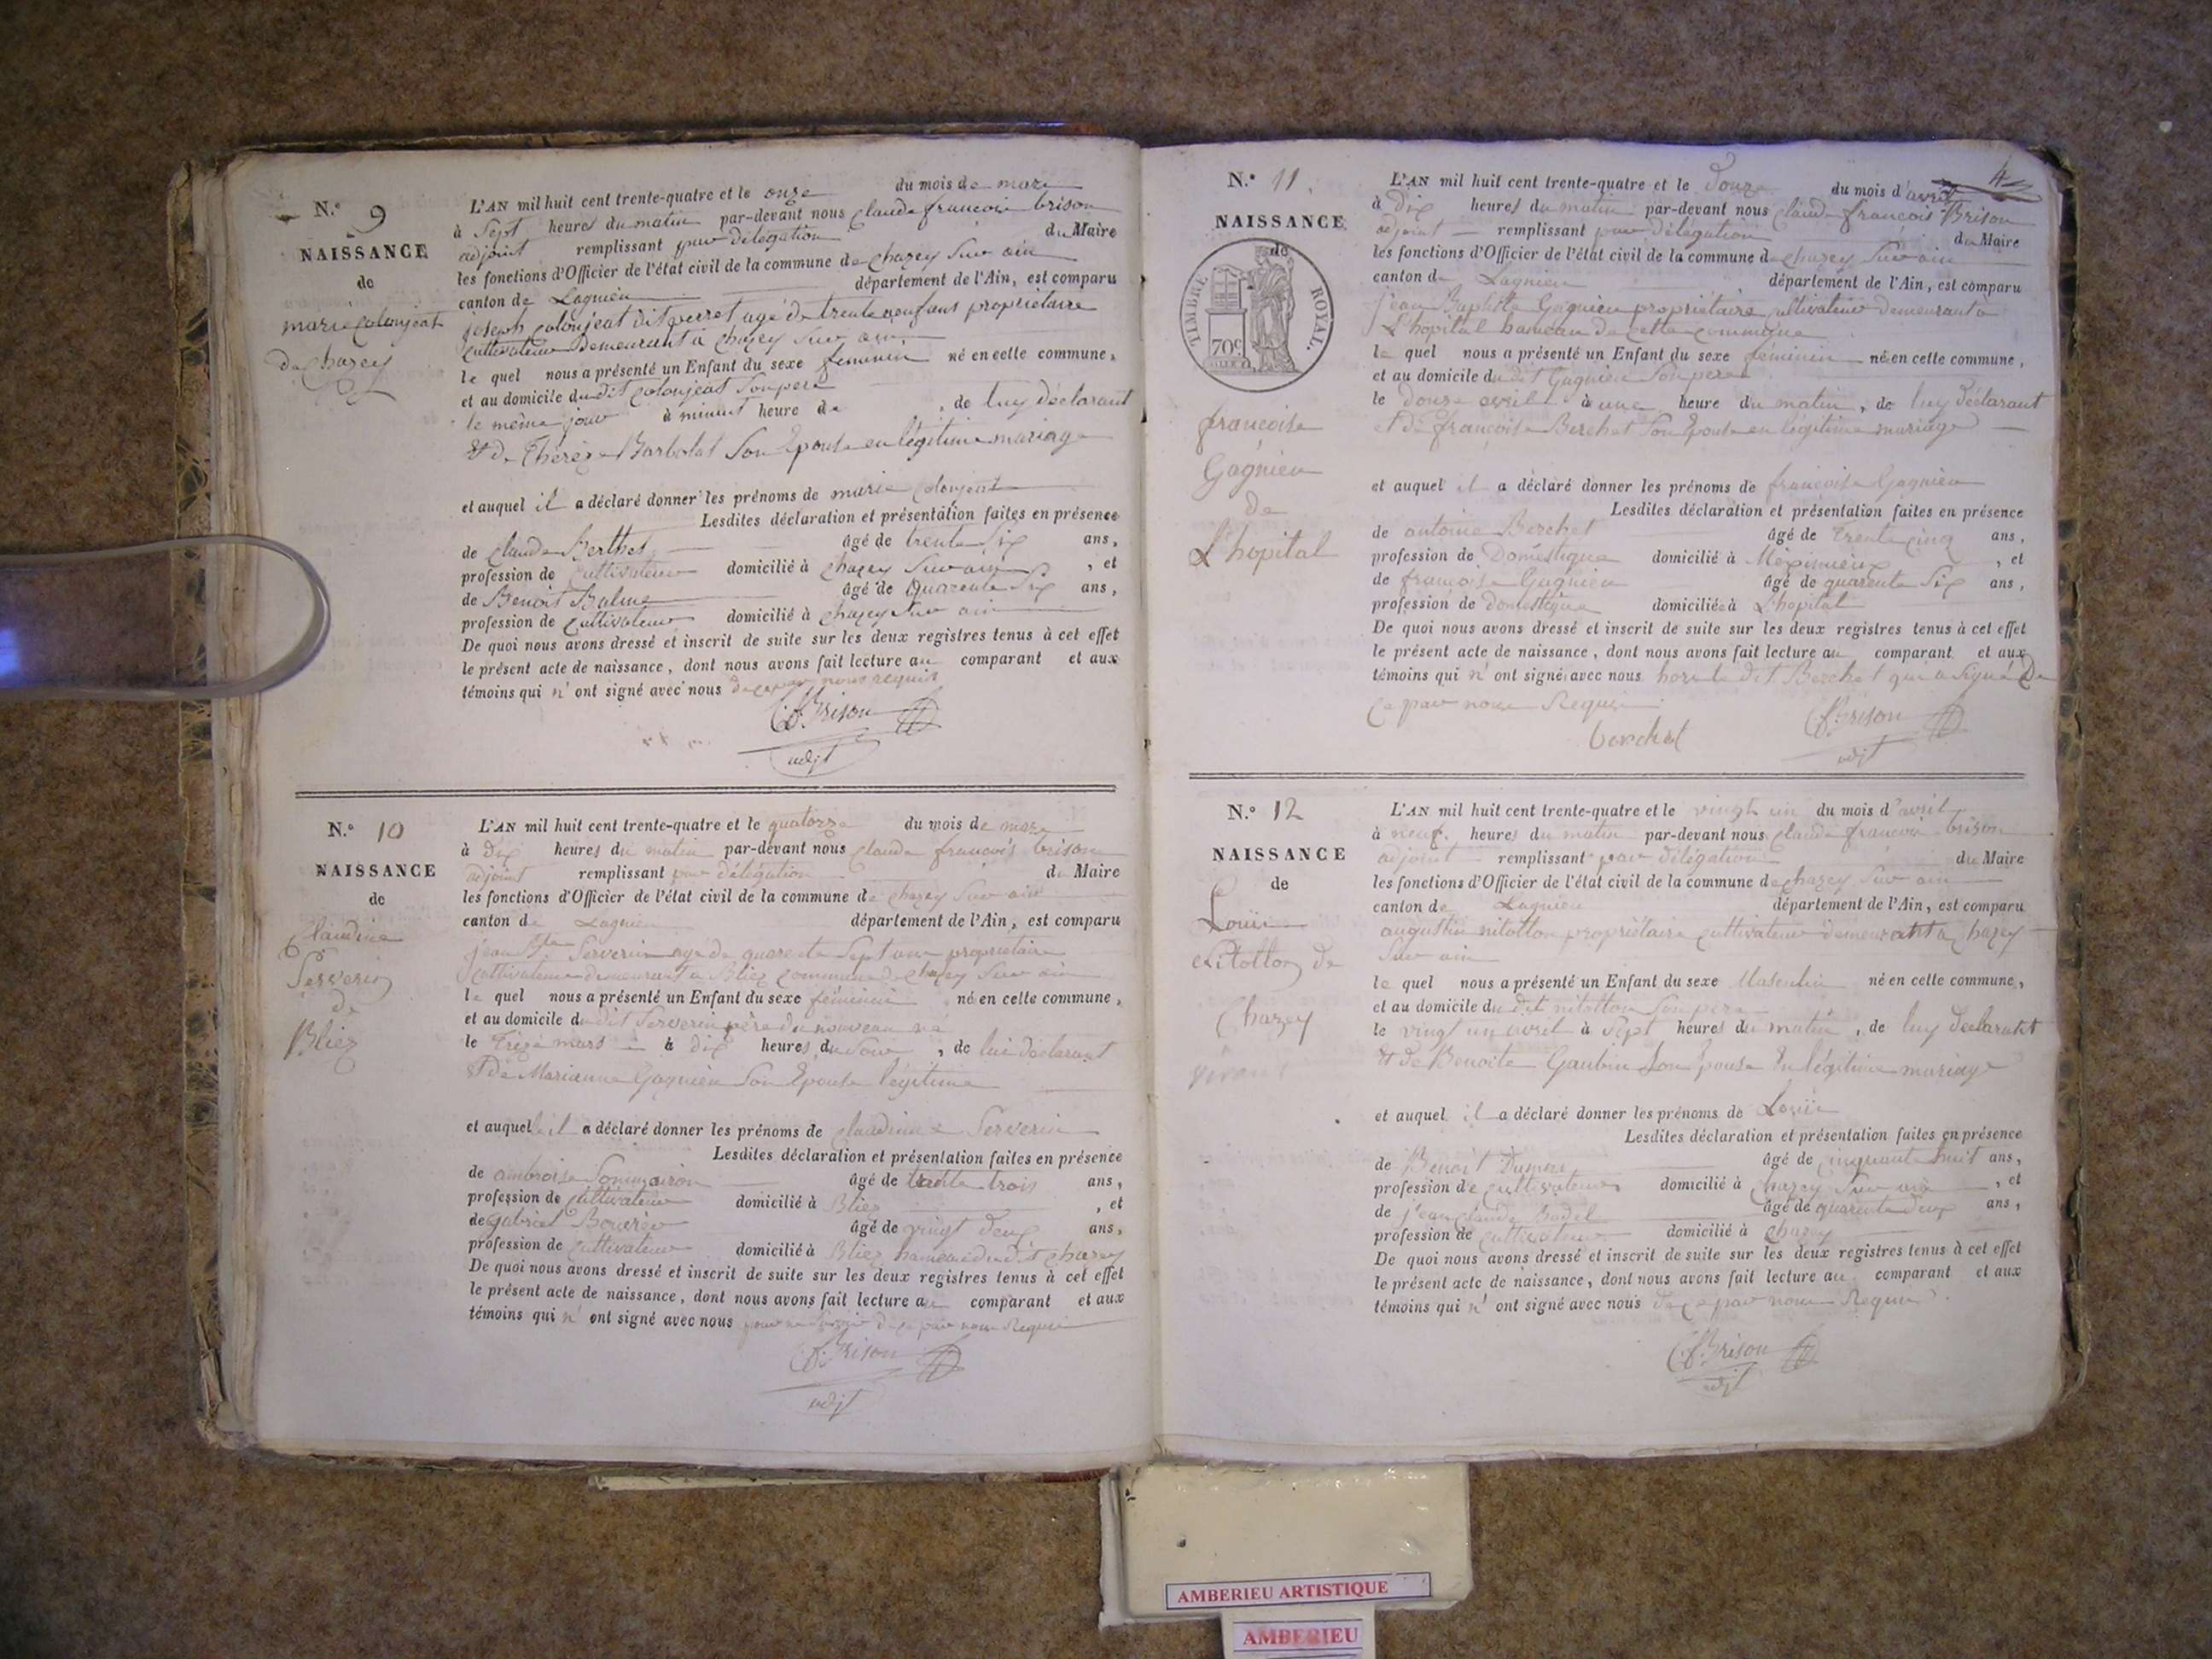 N.º 9
NAISSANCE
de
marie colonjeat
de chazey
L'AN mil huit cent trente-quatre et le onze du mois de mars
à sept heures du matin par-devant nous claude francois brison
adjoint remplissant par délégation du Maire
les fonctions d'Officier de l'état civil de la commune de chazey sur ain
canton de Lagnieu département de l'Ain, est comparu
joseph colonjeat dit perret agé de trente neuf ans propriétaire
cultivateur demeurant à chazey sur ain
le quel nous a présenté un Enfant du sexe feminin né en cette commune,
et au domicile du dit colonjeat son pere
le même jour à minuit heure de , de luy déclarant
& de Thérèse Barbolat son Epouse en légitime mariage
et auquel il a déclaré donner les prénoms de marie colonjeat
Lesdites déclaration et présentation faites en présence
de claude Berthet âgé de trente six ans,
profession de cultivateur domicilié à chazey sur ain , et
de Benoit Balme âgé de quarente six ans,
profession de cultivateur domicilié à chazey sur ain
De quoi nous avons dressé et inscrit de suite sur les deux registres tenus à cet effet
le présent acte de naissance, dont nous avons fait lecture au comparant et aux
témoins qui n' ont signé avec nous de ce par nous requis
C.f. Brison
adjt
N.º 10
NAISSANCE
de
Claudine
Serverin
de
Bliez
L'AN mil huit cent trente-quatre et le quatorze du mois de mars
à dix heures du matin par-devant nous claude francois brison
adjoint remplissant par délégation du Maire
les fonctions d'Officier de l'état civil de la commune de chazey sur ain
canton de Lagnieu département de l'Ain, est comparu
jean Bte Serverin agé de quarente sept ans propriétaire
cultivateur demeurant a Bliez commune de chazey sur ain
le quel nous a présenté un Enfant du sexe féminin né en cette commune,
et au domicile du dit Serverin père du nouveau né
le treize mars à dix heures du soir , de lui déclarant
& de Marianne Gagnieu son Epouse légitime
et auquel il a déclaré donner les prénoms de claudine Serverin
Lesdites déclaration et présentation faites en présence
de ambroise âgé de trente trois ans,
profession de cultivateur domicilié à Bliez , et
de gabriel âgé de vingt deux ans,
profession de cultivateur domicilié à Bliez hameau du dit chazey
De quoi nous avons dressé et inscrit de suite sur les deux registres tenus à cet effet
le présent acte de naissance, dont nous avons fait lecture au comparant et aux
témoins qui n' ont signé avec nous pour ne savoir de ce par nous Requis
C.f. Brison
adjt
4
N.º 11
NAISSANCE
de
TIMBRE ROYAL.
70c
francoise
Gagnieu
de
L'hopital
L'AN mil huit cent trente-quatre et le douze du mois d'avril
à dix heures du matin par-devant nous claude francois Brison
adjoint remplissant par délégation du Maire
les fonctions d'Officier de l'état civil de la commune de chazey sur ain
canton de Lagnieu département de l'Ain, est comparu
jean Baptiste Gagnieu propriétaire cultivateur demeurant à
L'hopital hameau de cette commune
le quel nous a présenté un Enfant du sexe féminin né en cette commune,
et au domicile du dit Gagnieu son pere
le douze avril à une heure du matin , de luy déclarant
et de francoise Berchet son Epouse en légitime mariage
et auquel il a déclaré donner les prénoms de francoise Gagnieu
Lesdites déclaration et présentation faites en présence
de antoine Berchet âgé de trente cinq ans,
profession de Domestique domicilié à Méximieux , et
de francoise Gagnieu âgé de quarente six ans,
profession de domestique domiciliée à L'hopital
De quoi nous avons dressé et inscrit de suite sur les deux registres tenus à cet effet
le présent acte de naissance, dont nous avons fait lecture au comparant et aux
témoins qui n' ont signé avec nous hors le dit Berchet qui a signé De
ce par nous Requis
berchet C.f. Brison
adjt
N.º 12
NAISSANCE
de
Louis
Nitollon de
Chazey
vivant
L'AN mil huit cent trente-quatre et le vingt un du mois d'avril
à neuf heures du matin par-devant nous claude francois brison
adjoint remplissant par délégation du Maire
les fonctions d'Officier de l'état civil de la commune de chazey sur ain
canton de Lagnieu département de l'Ain, est comparu
augustin nitollon propriétaire cultivateur demeurant a chazey
sur ain
le quel nous a présenté un Enfant du sexe Masculin né en cette commune,
et au domicile du dit nitollon son pere
le vingt un avril à sept heures du matin , de luy declarant
& de Benoite Gaubin son epouse En légitime mariage
et auquel il a déclaré donner les prénoms de Louis
Lesdites déclaration et présentation faites en présence
de Benoit âgé de cinquante huit ans,
profession de cultivateur domicilié à chazey sur ain , et
de jean claude Bodel âgé de quarente deux ans,
profession de cultivateur domicilié à chazey
De quoi nous avons dressé et inscrit de suite sur les deux registres tenus à cet effet
le présent acte de naissance, dont nous avons fait lecture au comparant et aux
témoins qui n' ont signé avec nous de ce par nous Requis
C.f. Brison
adjt
AMBERIEU ARTISTIQUE
AMBERIEU